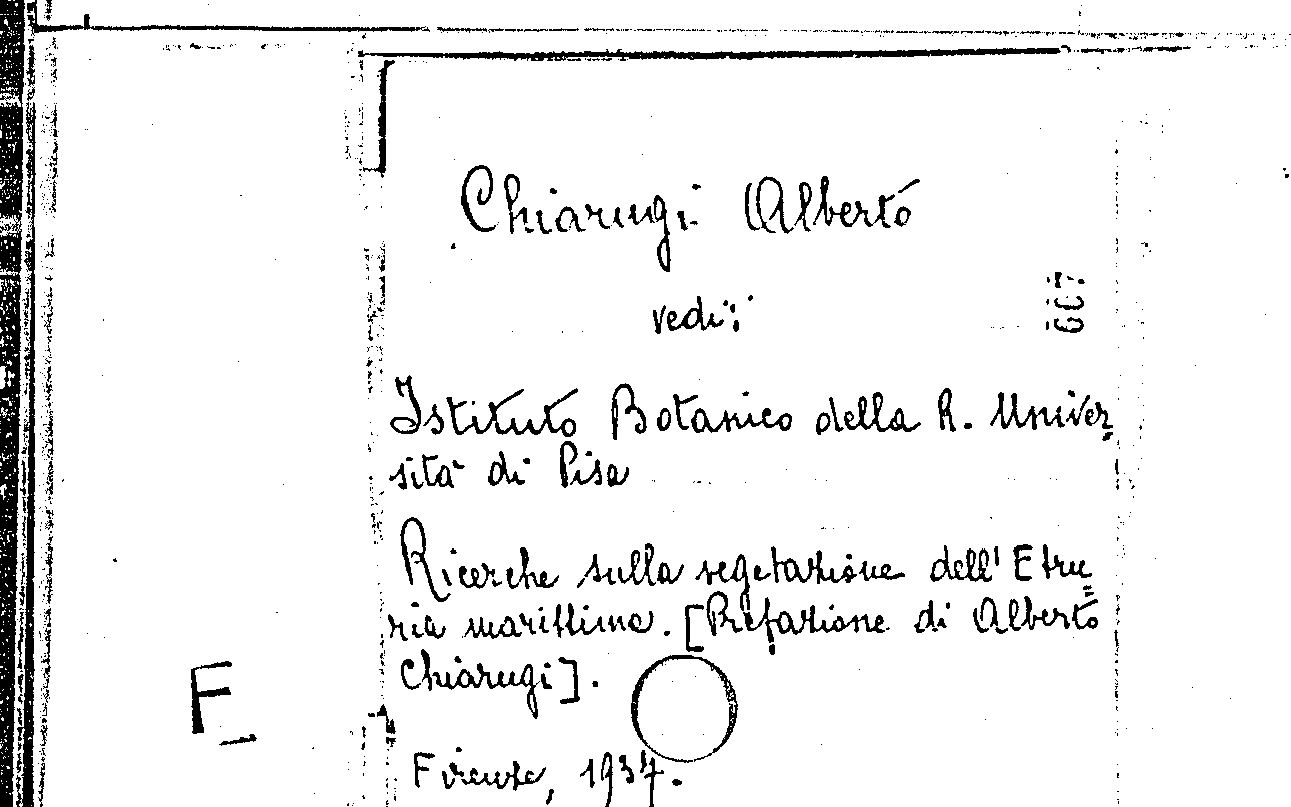 Chiarugi Alberto
vedi:
667
Istituto Botanico della R. Univer=
sità di Pisa
Ricerche sulla vegetazione dell'Etru=
ria marittima. [Prefazione di Alberto
Chiarugi].
F
Firenze, 1934.